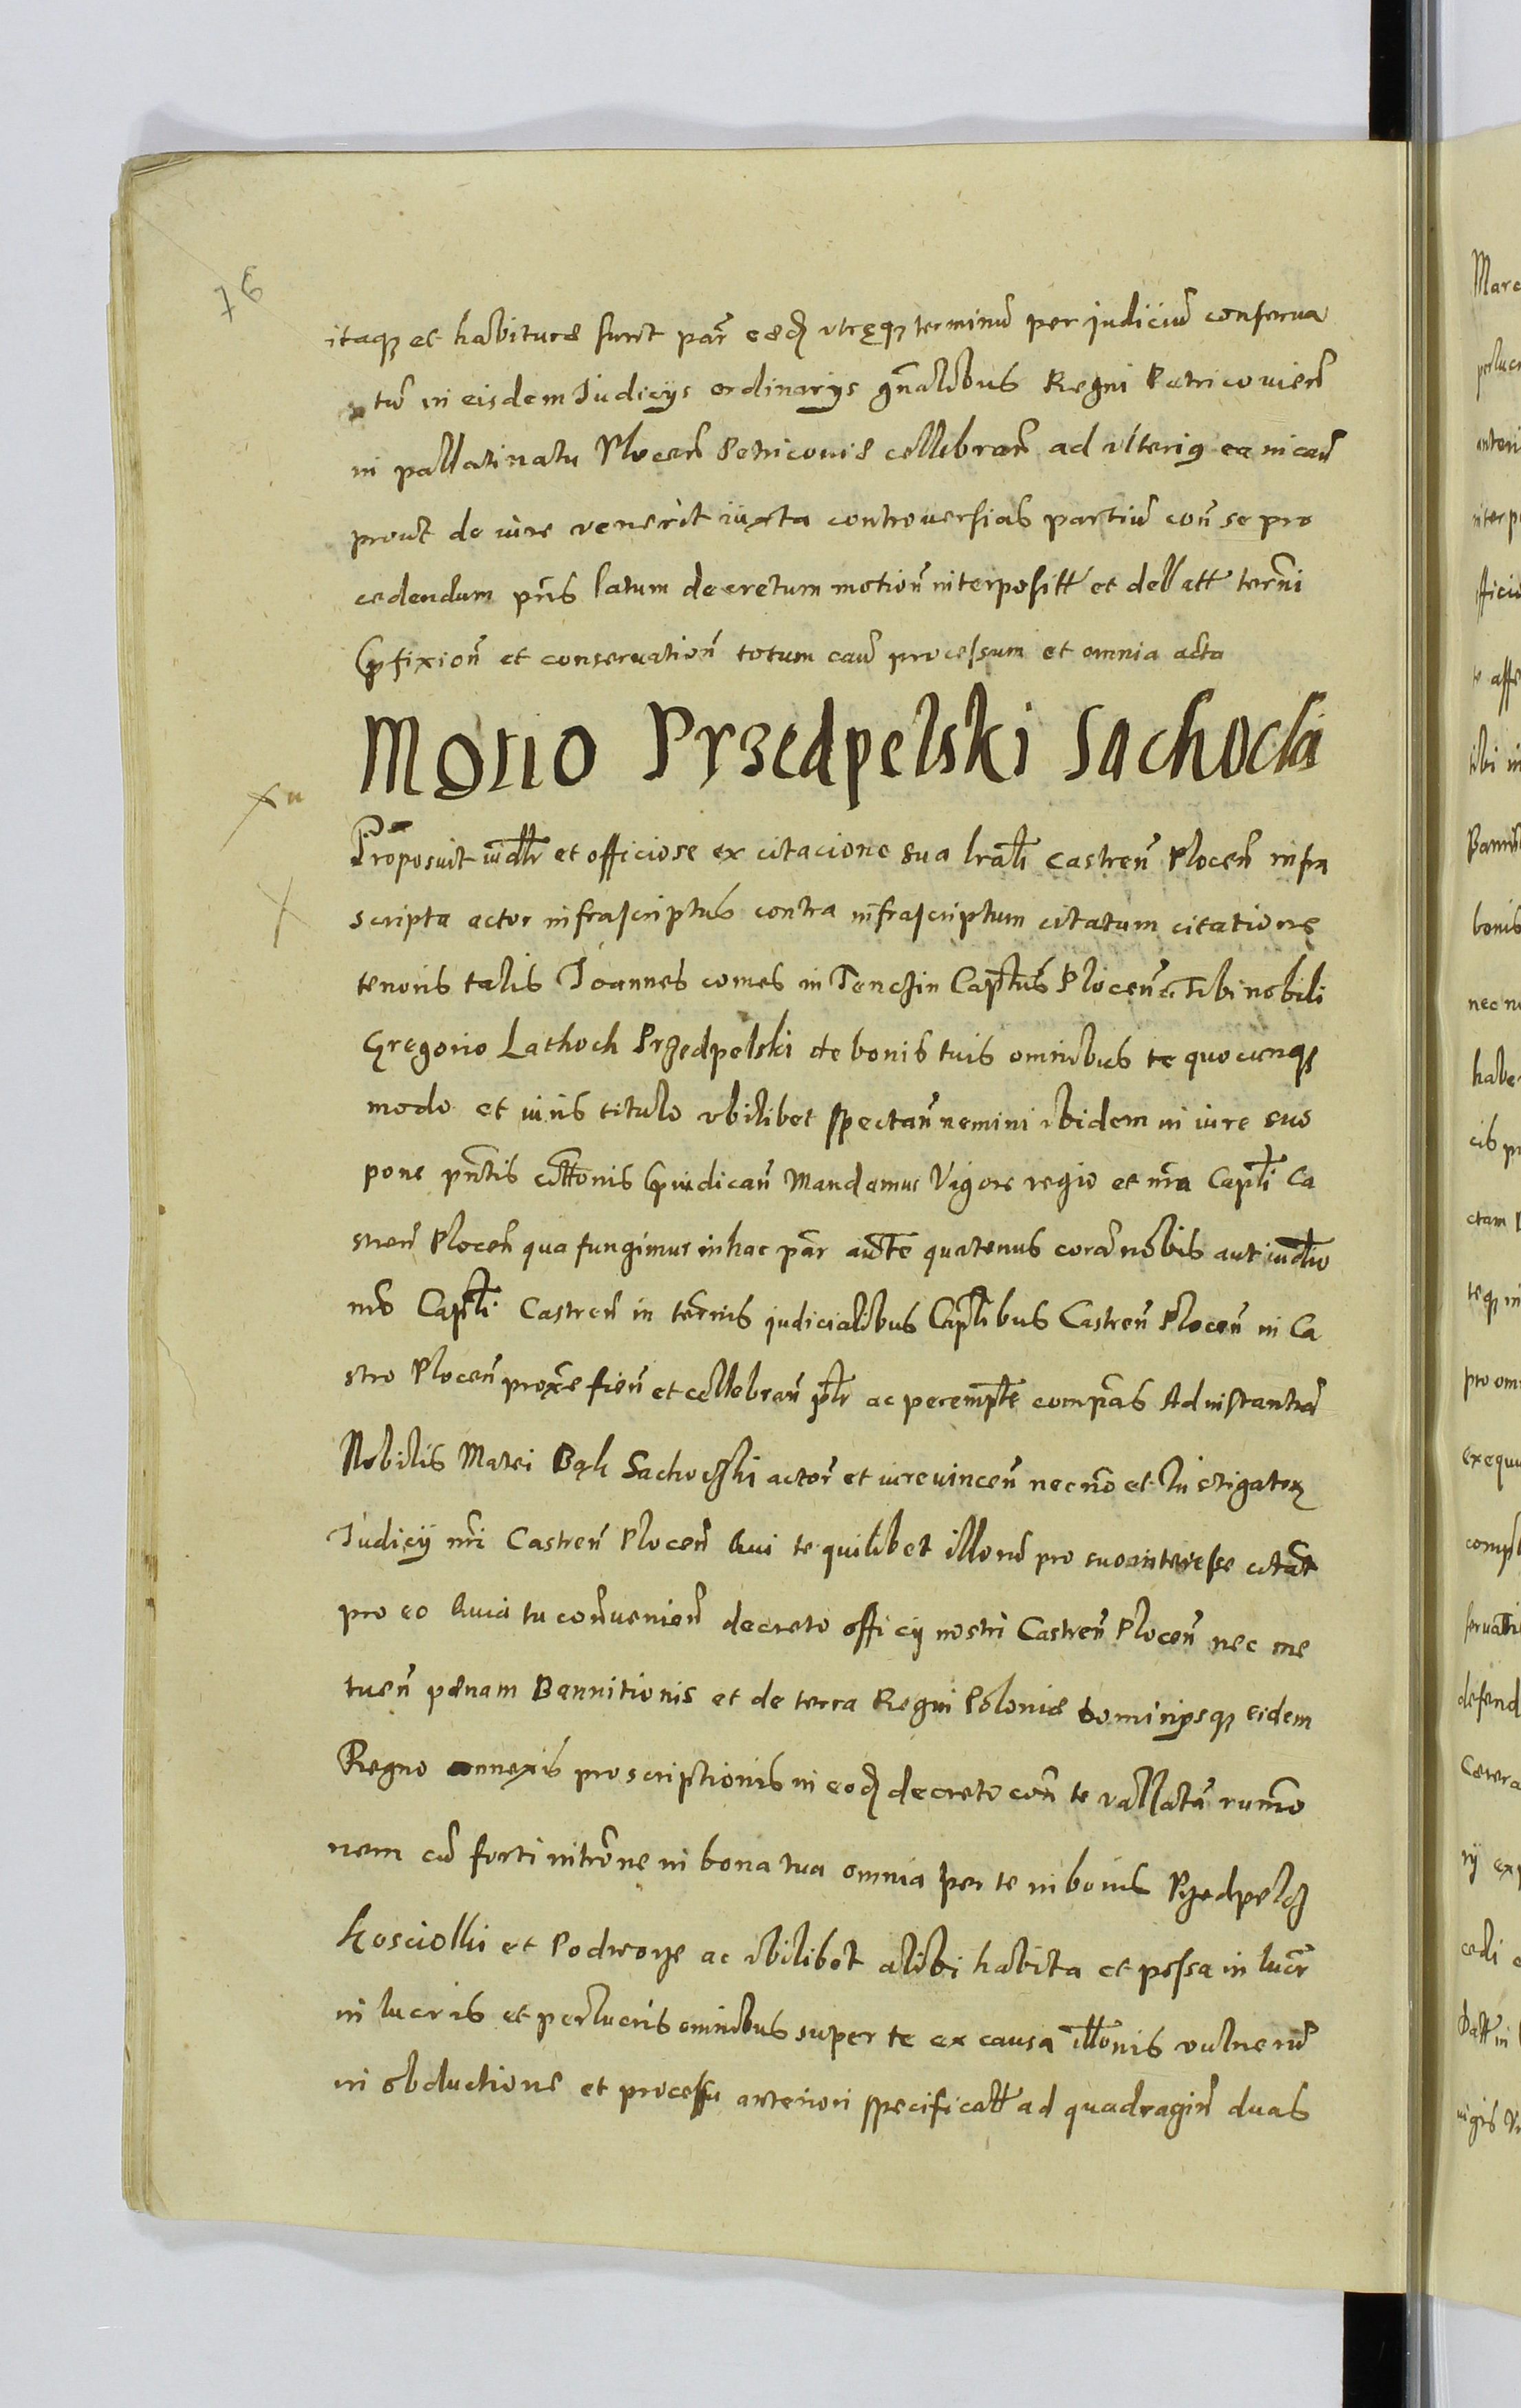 76
itaqꝫ et habiturae sunt par̃ eaed̃ utręqꝫ terminũ per judiciũ conserua
tũ in eisdem Iudicijs ordinarijs gñalibus Regni Petricouien̄
in pallatinatu Plocen̄ Petricouiae cellebran̄ ad ulteriꝯ ea in caũ
prout de iure venerit iuxta controuersias partiũ con̄ se pro
cedendum pñs latum decretum motion̄ interpositt et dellatt term̃i
pfixion̄ et conseruation̄ totum caũ processum et omnia acta
Motio Przedpelski Sachocki
Proposuit iudltr et officiose ex citacione sua lrali Castren̄ Plocen̄ infra
scripta actor infrascriptus contra infrascriptum citatum citationẹ
tenoris talis Ioannes comes in Tenczin Capltus Plocen̄ &c Tibi nobili
Gregorio Lathoch Przedpelski de bonis tuis omnibus te quocunqꝫ
modo et iuris titulo ubilibet spectan̄ nemini ibidem in iure suo
pone pñtis cittonis piudican̄ Mandamus Vigore regio et nr̃a Caplti Ca
stren̄ Plocen̄ qua fungimur in hac par̃ autte quatenus corã nobis aut iudtio
nr̃o Caplti Castren̄ in term̃is judicialibus Capltibus Castren̄ Plocen̄ in Ca
stro Plocen̄ proxe fien̄ et cellebran̄ pltr ac perempte compãs Ad instantiã
Nobilis Matei Bąk Sachoczki actor̃ et iurevincen̄ necnō et Instigatorꝫ
Iudicij nr̃i Castren̄ Plocen̄ Qui te quilibet illorũ pro suo interesse citat
pro eo Quia tu con̄uenien̄ decreto officij nostri Castren̄ Plocen̄ nec me
tuen̄ pęnam Bannitionis et de terra Regni Poloniae Dominijsqꝫ eidem
Regno annexis proscriptionis in eod̃ decreto con̄ te vallatã rumo
nem cũ forti intrõne in bona tua omnia per te in bonis Przedpelcz
Kosciolki et Podworze ac ubilibet alibi habita et possa in lucr̃
in lucris et perlucris omnibus super te ex causa illonis vulnerũ
in obductione et processu anteriori specificatt ad quadragin̄ duas